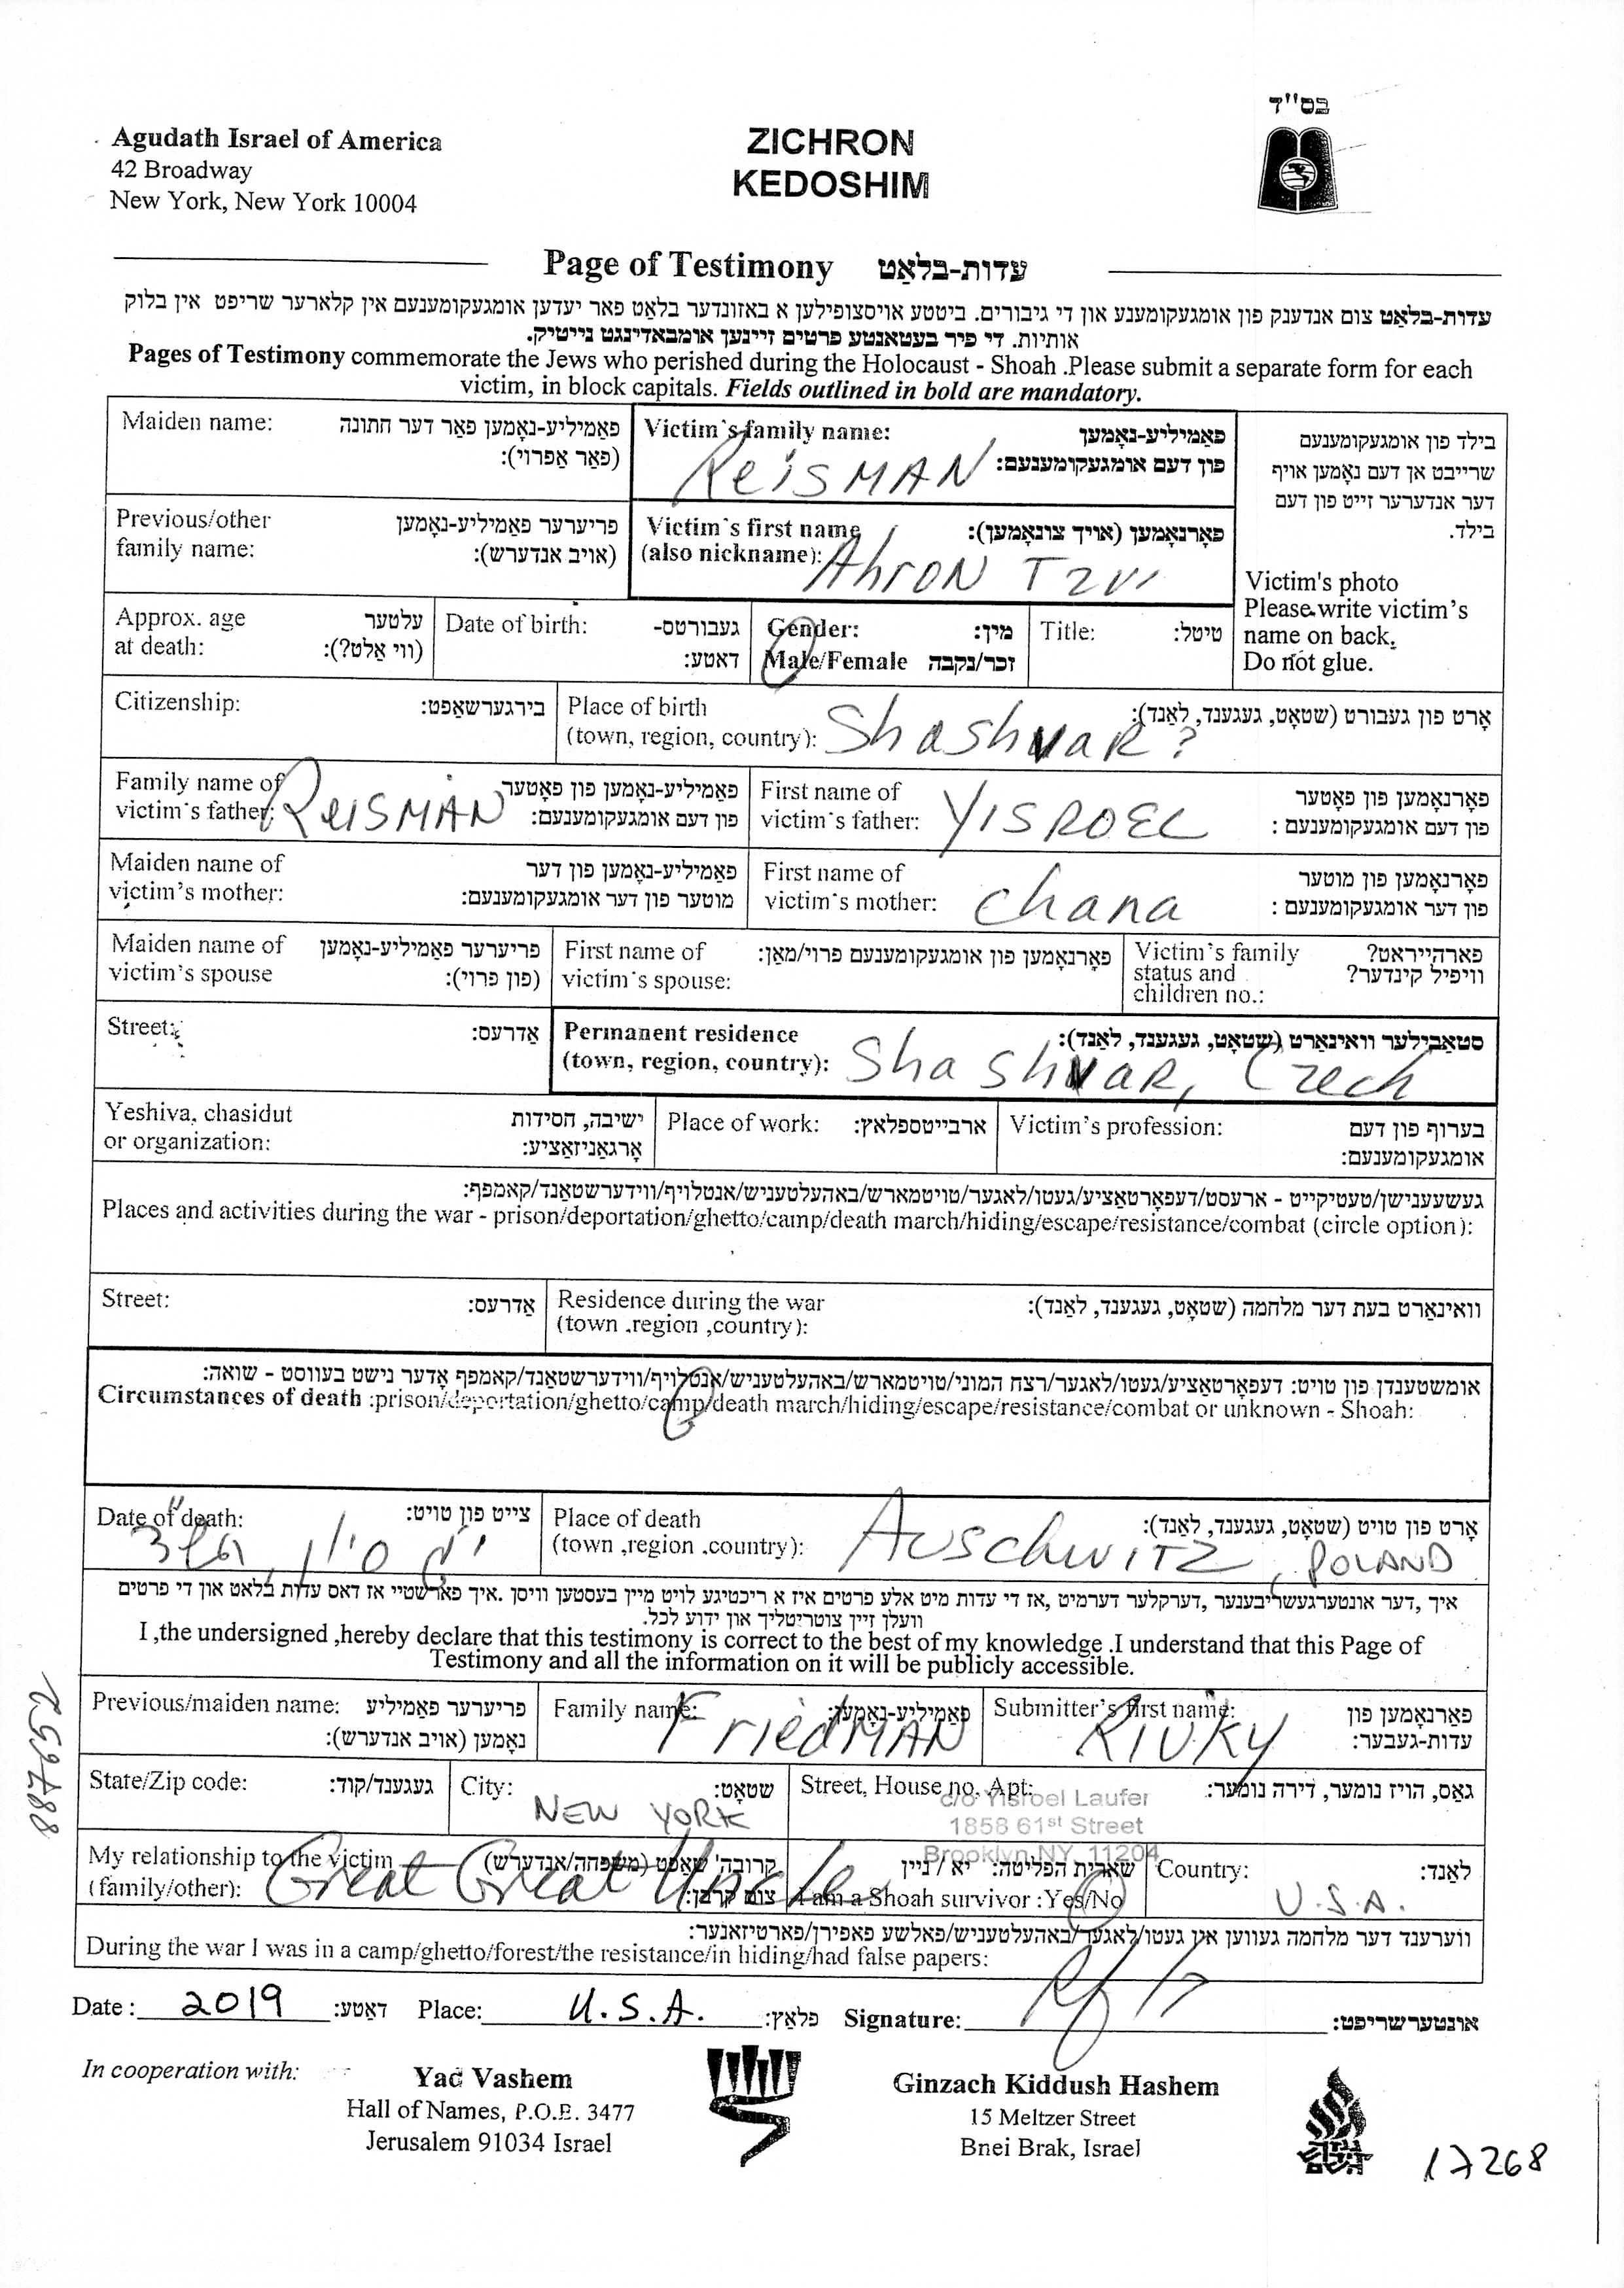 בס"ד
Agudath Israel of America
42 Broadway
New York, New York 10004
ZICHRON
KEDOSHIM
Page of Testimony עדות-בלאַט
עדות-בלאַט צום אנדענק פון אומגעקומענע און די גיבורים. ביטע אויסצופילען א באזונדער בלאַט פאר יעדען אומגעקומענעם אין קלארער שריפט אין בלוק
אותיות. די פיר בעטאנטע פרטים זיינען אומבאדינגט נייטיק.
Pages of Testimony commemorate the Jews who perished during the Holocaust - Shoah .Please submit a separate form for each
victim, in block capitals. Fields outlined in bold are mandatory.
Maiden name: פאַמיליע-נאָמען פאַר דער חתונה
(פאַר אַפרוי):
Victim's family name: פאַמיליע-נאָמען
פון דעם אומגעקומענעם:
ReiSMAN
בילד פון אומגעקומענעם
שרייבט אן דעם נאָמען אויף
דער אנדערער זייט פון דעם
בילד.
Previous/other
family name:
פריערער פאַמיליע-נאָמען
(אויב אנדערש):
Victim's first name
(also nickname):
פאָרנאָמען (אויך צונאָמען):
AhRON Tzvi
Victim's photo
Please write victim's
name on back.
Do not glue.
Approx. age
at death:
עלטער
(ווי אַלט?):
Date of birth: געבורטס-
דאַטע:
Gender: מין:
Male/Female זכר/נקבה
Title: טיטל:
Citizenship: בירגערשאַפט:
Place of birth
(town, region, country):
אָרט פון געבורט (שטאָט, געגענד, לאַנד):
ShashvaR?
Family name of
victim's father:
פאַמיליע-נאָמען פון פאָטער
פון דעם אומגעקומענעם:
ReiSMAN
First name of
victim's father:
פאָרנאָמען פון פאָטער
פון דעם אומגעקומענעם :
YISROEL
Maiden name of
victim's mother:
פאַמיליע-נאָמען פון דער
מוטער פון דער אומגעקומענעם:
First name of
victim's mother:
פאָרנאָמען פון מוטער
פון דער אומגעקומענעם :
chana
Maiden name of
victim's spouse
פריערער פאַמיליע-נאָמען
(פון פרוי):
First name of
victim's spouse:
פאָרנאָמען פון אומגעקומענעם פרוי/מאַן:
Victim's family
status and
children no.:
פארהייראט?
וויפיל קינדער?
Street: אַדרעס:
Permanent residence
(town, region, country):
סטאַבילער וואוינאָרט (שטאָט, געגענד, לאַנד):
ShashvaR, Czech
Yeshiva, chasidut
or organization:
ישיבה, חסידות
אָרגאַניזאַציע:
Place of work: ארבייטספלאץ:
Victim's profession: בערוף פון דעם
אומגעקומענעם:
געשעענישן/טעטיקייט - ארעסט/דעפאָרטאַציע/געטו/לאַגער/טויטמארש/באהעלטעניש/אנטלויף/ווידערשטאַנד/קאמפף:
Places and activities during the war - prison/deportation/ghetto/camp/death march/hiding/escape/resistance/combat (circle option):
Street: אַדרעס:
Residence during the war
(town ,region ,country):
וואוינאָרט בעת דער מלחמה (שטאָט, געגענד, לאַנד):
אומשטענדן פון טויט: דעפאָרטאַציע/געטו/לאגער/רצח המוני/טויטמארש/באהעלטעניש/אנטלויף/ווידערשטאַנד/קאמפף אָדער נישט בעוואוסט - שואה:
Circumstances of death :prison/deportation/ghetto/camp/death march/hiding/escape/resistance/combat or unknown - Shoah:
Date of death: צייט פון טויט:
סיון,
Place of death
(town ,region .country):
אָרט פון טויט (שטאָט, געגענד, לאַנד):
Auschwitz, POLAND
איך ,דער אונטערגעשריבענער ,דערקלער דערמיט ,אז די עדות מיט אלע פרטים איז א ריכטיגע לויט מיין בעסטען וויסן .איך פארשטיי אז דאס עדות בלאט און די פרטים
וועלן זיין צוטריטליך און ידוע לכל.
I ,the undersigned ,hereby declare that this testimony is correct to the best of my knowledge .I understand that this Page of
Testimony and all the information on it will be publicly accessible.
Previous/maiden name: פריערער פאַמיליע
נאָמען (אויב אנדערש):
Family name: פאַמיליע-נאָמען:
FriedMAN
Submitter's first name: פאַרנאָמען פון
עדות-געבער:
RIVKY
State/Zip code: געגענד/קוד:
City: שטאָט:
NEW YORK
Street, House no. Apt: גאַס, הויז נומער, דירה נומער:
c/o Yisroel Laufer
1858 61st Street
Brooklyn NY, 11204
My relationship to the victim
(family/other):
קרובה' שאַפט (משפחה/אנדערש)
צום קרבן:
Great Great Uncle
שארית הפליטה: יא / ניין
I am a Shoah survivor :Yes/No
Country: לאַנד:
U.S.A.
ווערענד דער מלחמה געווען אין געטו/לאַגער/באהעלטעניש/פאלשע פאפירן/פארטיזאנער:
During the war I was in a camp/ghetto/forest/the resistance/in hiding/had false papers:
Date : 2019 דאַטע: Place: U.S.A. פלאַץ: Signature: אונטערשריפט:
In cooperation with:
Yad Vashem
Hall of Names, P.O.B. 3477
Jerusalem 91034 Israel
Ginzach Kiddush Hashem
15 Meltzer Street
Bnei Brak, Israel
17268